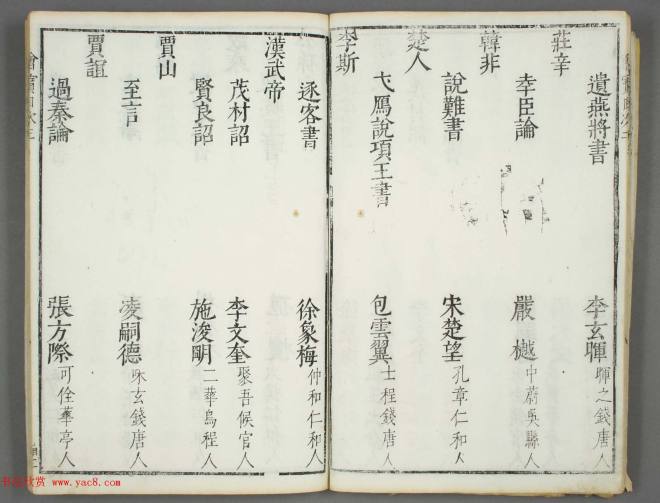 遺燕將書 李玄暉 暉之錢唐人
莊辛
幸臣論 嚴樾 中蔚吳縣人
韓非
說難書 宋楚望 孔章仁和人
楚人
弋鴈說項王書 包雲翼 士程錢唐人
李斯
逐客書 徐象梅 仲和仁和人
漢武帝
茂材詔 李文奎 聚吾候官人
賢良詔 施浚明 二華烏程人
賈山
至言 凌嗣德 玄錢唐人
賈誼
過秦論 張方際 可佺華亭人
书品欣赏 www.yac8.com